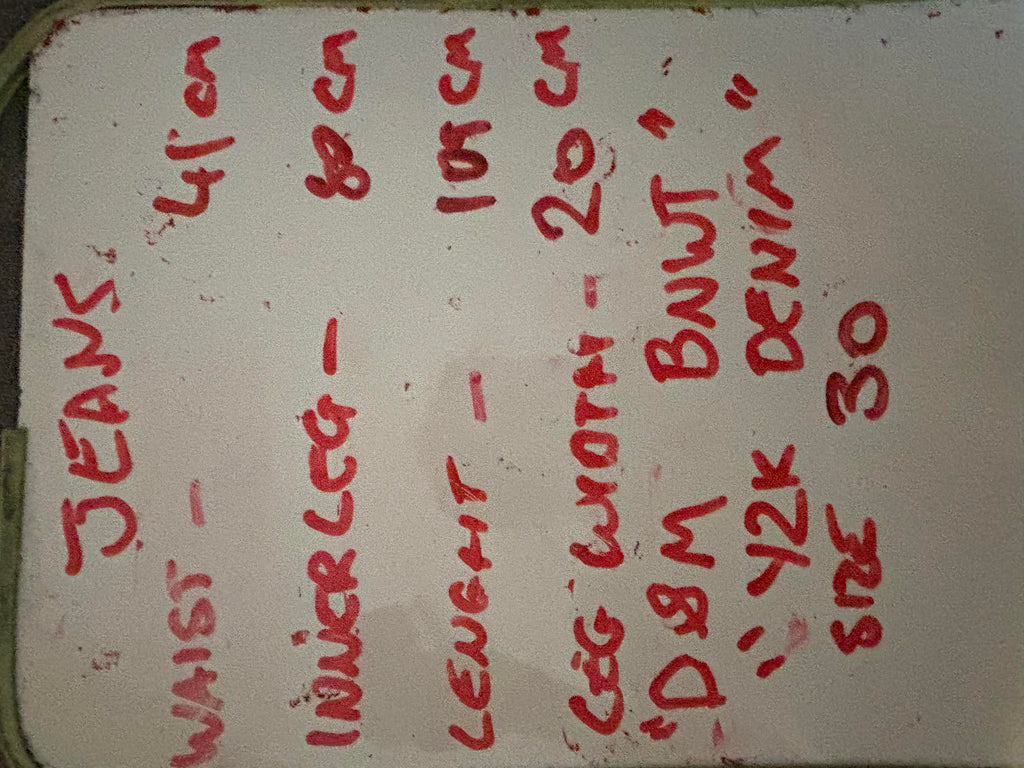 JEANS
WAIST - 41 cm
INNERLEG - 80 cm
LENGHT - 105 cm
LEG WIDTH - 20 cm
"D&M BNWT"
"Y2K DENIM"
SIZE 30